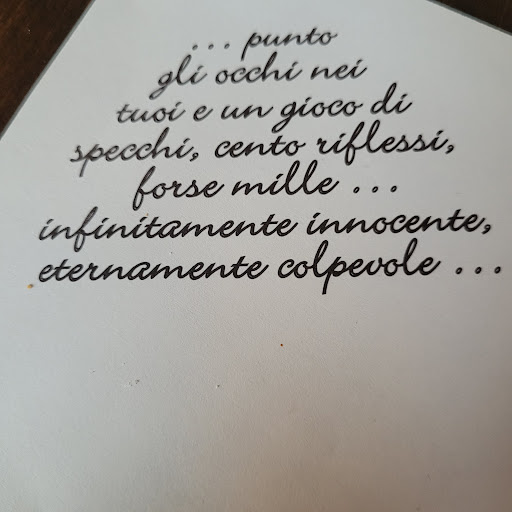 ... punto
gli occhi nei
tuoi e un gioco di
specchi, cento riflessi,
forse mille ...
infinitamente innocente,
eternamente colpevole ...